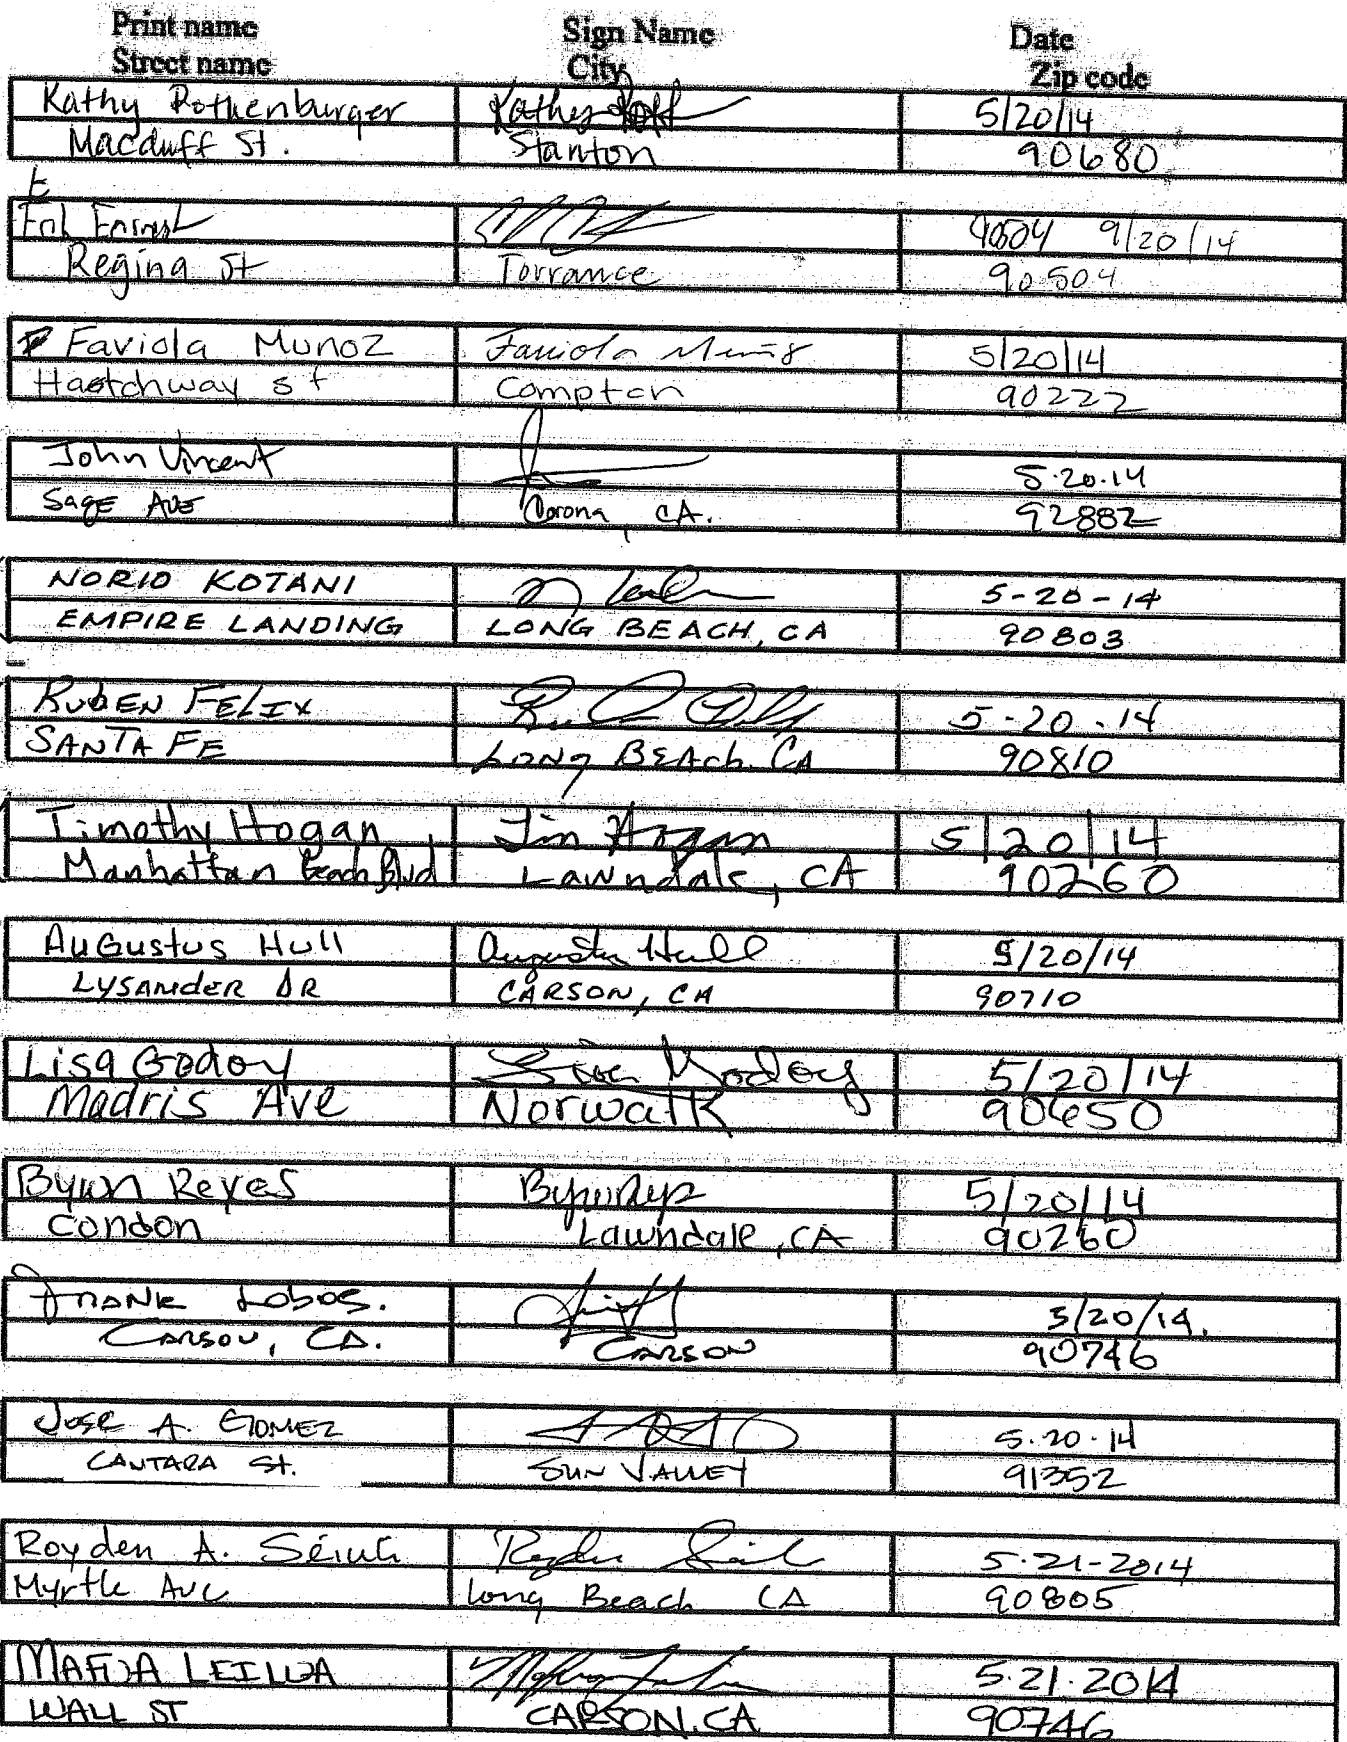 Print name Sign Name Date
Street name City Zip code
Kathy Rothenburger Kathy 5/20/14
Macduff St. Stanton 90680
E
90504 9/20/14
Regina St Torrance 90504
Faviola Munoz Faviola Munoz 5/20/14
Haatchway st Compton 90222
John Vincent 5.20.14
Sage Ave Corona, CA. 92882
NORIO KOTANI 5-20-14
EMPIRE LANDING LONG BEACH, CA 90803
RUBEN FELIX 5-20-14
SANTA FE LONG BEACH. CA 90810
Timothy Hogan Tim Hogan 5/20/14
Manhattan Beach Blvd Lawndale, CA 90260
AUGUSTUS HULL Augustus Hull 5/20/14
LYSANDER DR CARSON, CA 90710
Lisa Godoy Lisa Godoy 5/20/14
Madris Ave Norwalk 90650
Byron Reyes 5/20/14
Condon Lawndale, CA 90260
FRANK LOBOS. 5/20/14.
CARSON, CA. CARSON 90746
JOSE A. GOMEZ 5.20.14
CANTARA St. SUN VALLEY 91352
Royden A. 5.21-2014
Myrtle Ave Long Beach CA 90805
LEILUA 5.21.2014
WALL ST CARSON, CA 90746